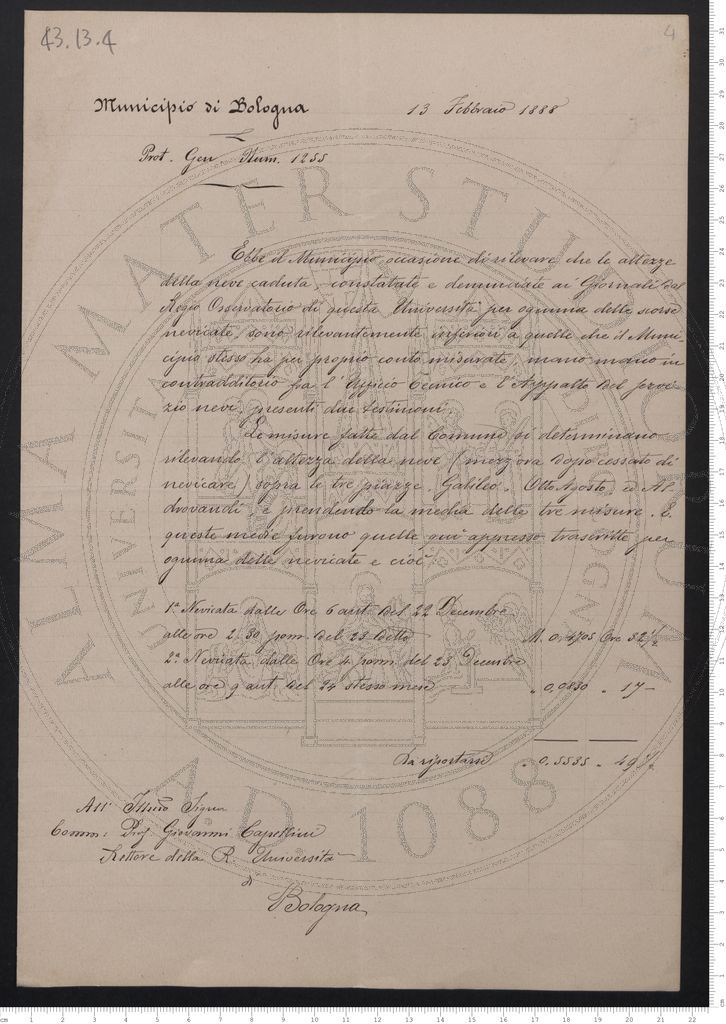 43.13.4
4
Municipio di Bologna
13 Febbraio 1888
Prot. Gen. Num. 1255
Ebbe il Municipio occasione di rilevare che le altezze
della neve caduta, constatate e denunciate ai Giornali dal
Regio Osservatorio di questa Università per ognuna delle scorse
nevicate, sono rilevantemente inferiori a quelle che il Muni-
cipio stesso ha per proprio conto misurate, mano mano in
contradditorio fra l'Ufficio Tecnico e l'Appalto del servi-
zio nevi, presenti due testimoni.
Le misure fatte dal Comune si determinano
rilevando l'altezza della neve (mezz'ora dopo cessato di
nevicare) sopra le tre piazze. Galileo. Otto Agosto, ed Al-
drovandi, e prendendo la media delle tre misure. E
queste medie furono quelle qui appresso trascritte per
ognuna delle nevicate e cioè
1a Nevicata dalle Ore 6 ant. del 22 Decembre
alle ore 2.30 pom. del 23 detto M. 0.4705 Ore 32 1/2
2a Nevicata dalle Ore 4 pom. del 23 Decembre
alle ore 9 ant. del 24 stesso mese " 0,0830 " 17 -
Da riportarsi " 0.5535 " 49 1/2
All' Illmo Signor
Comm: Prof. Giovanni Capellini
Rettore della R. Università
di
Bologna
ALMA MATER STUDIORUM
A.D. 1088